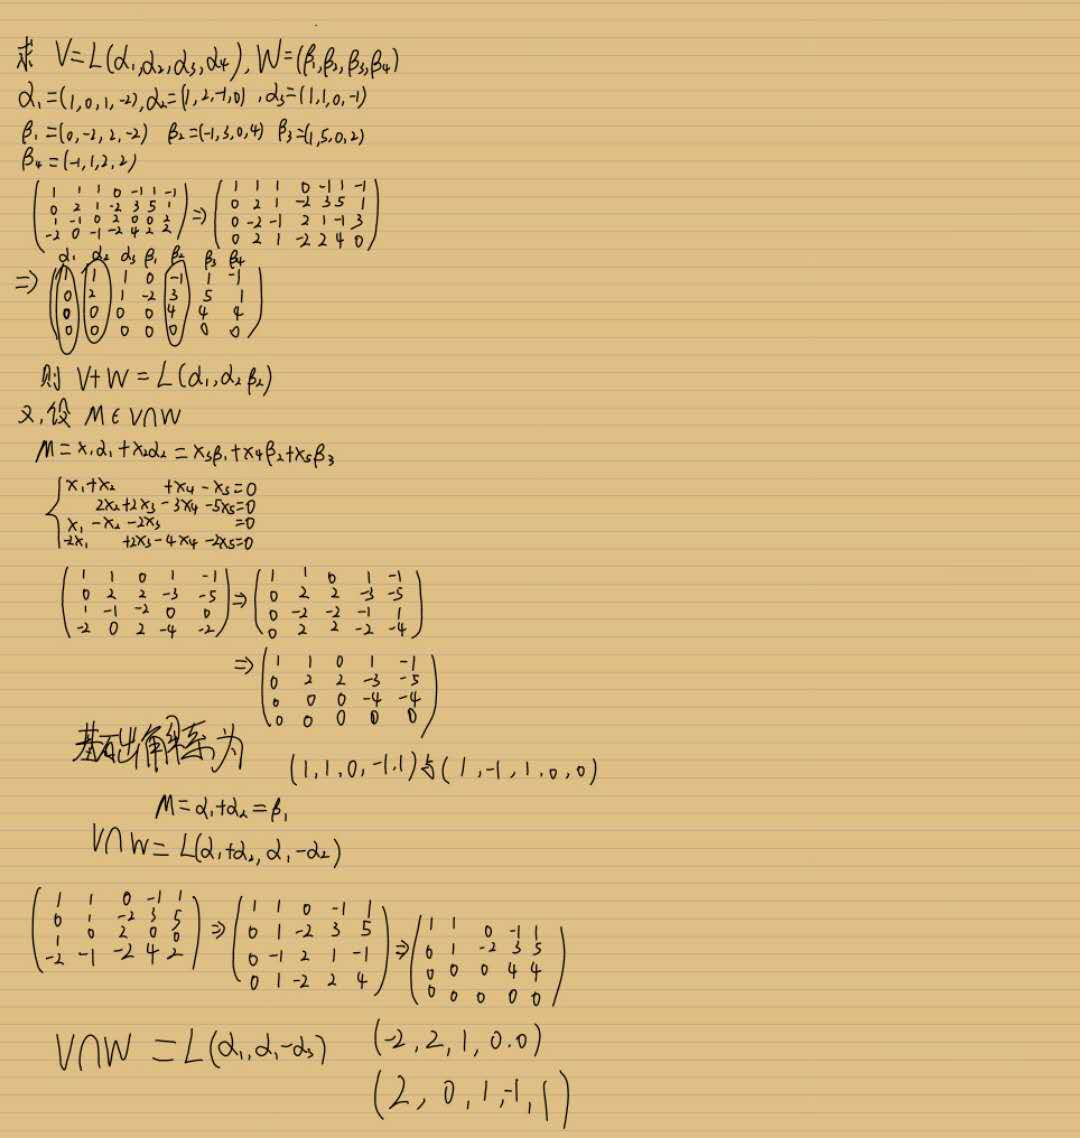 求 V=L(α₁,α₂,α₃,α₄), W=(β₁,β₂,β₃,β₄)
α₁=(1,0,1,-2), α₂=(1,2,-1,0), α₃=(1,1,0,-1)
β₁=(0,-2,2,-2) β₂=(-1,3,0,4) β₃=(1,5,0,2)
β₄=(-1,1,2,2)
1 1 1 0 -1 1 -1 1 1 1 0 -1 1 -1
0 2 1 -2 3 5 1 ⇒ 0 2 1 -2 3 5 1
1 -1 0 2 0 0 2 0 -2 -1 2 1 -1 3
-2 0 -1 -2 4 2 2 0 2 1 -2 2 4 0
α₁ α₂ α₃ β₁ β₂ β₃ β₄
⇒ 1 1 1 0 -1 1 -1
0 2 1 -2 3 5 1
0 0 0 0 4 4 4
0 0 0 0 0 0 0
则 V+W=L(α₁,α₂ β₂)
又,设 M∈V∩W
M=x₁α₁+x₂α₂=x₃β₁+x₄β₂+x₅β₃
x₁+x₂ +x₄-x₅=0
2x₂+2x₃-3x₄-5x₅=0
x₁-x₂-2x₃ =0
-2x₁ +2x₃-4x₄-2x₅=0
1 1 0 1 -1 1 1 0 1 -1
0 2 2 -3 -5 ⇒ 0 2 2 -3 -5
1 -1 -2 0 0 0 -2 -2 -1 1
-2 0 2 -4 -2 0 2 2 -2 -4
⇒ 1 1 0 1 -1
0 2 2 -3 -5
0 0 0 -4 -4
0 0 0 0 0
基础解系为
(1,1,0,-1,1)与(1,-1,1,0,0)
M=α₁+α₂=β₁
V∩W=L(α₁+α₂,α₁-α₂)
1 1 0 -1 1 1 1 0 -1 1 1 1 0 -1 1
0 1 -2 3 5 ⇒ 0 1 -2 3 5 ⇒ 0 1 -2 3 5
1 0 2 0 0 0 -1 2 1 -1 0 0 0 4 4
-2 -1 -2 4 2 0 1 -2 2 4 0 0 0 0 0
V∩W=L(α₁,α₁-α₃) (-2,2,1,0.0)
(2,0,1,-1,1)